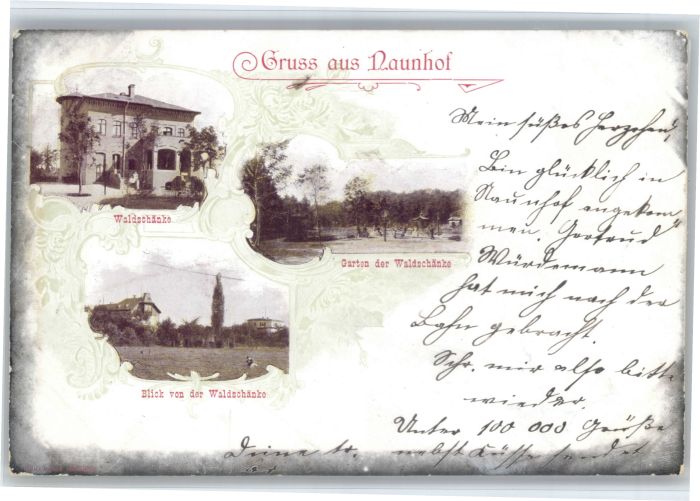 Gruss aus Naunhof
Waldschänke
Garten der Waldschänke
Blick von der Waldschänke
Mein süßes Herzchen,
Bin glücklich in
Naunhof angekom
men. Gertrud
Würdemann
hat mich nach der
Bahn gebracht.
Schr. mir also bitte
wieder.
Unter 100 000 Grüße
nebst Küsse sendet
Deine tr.